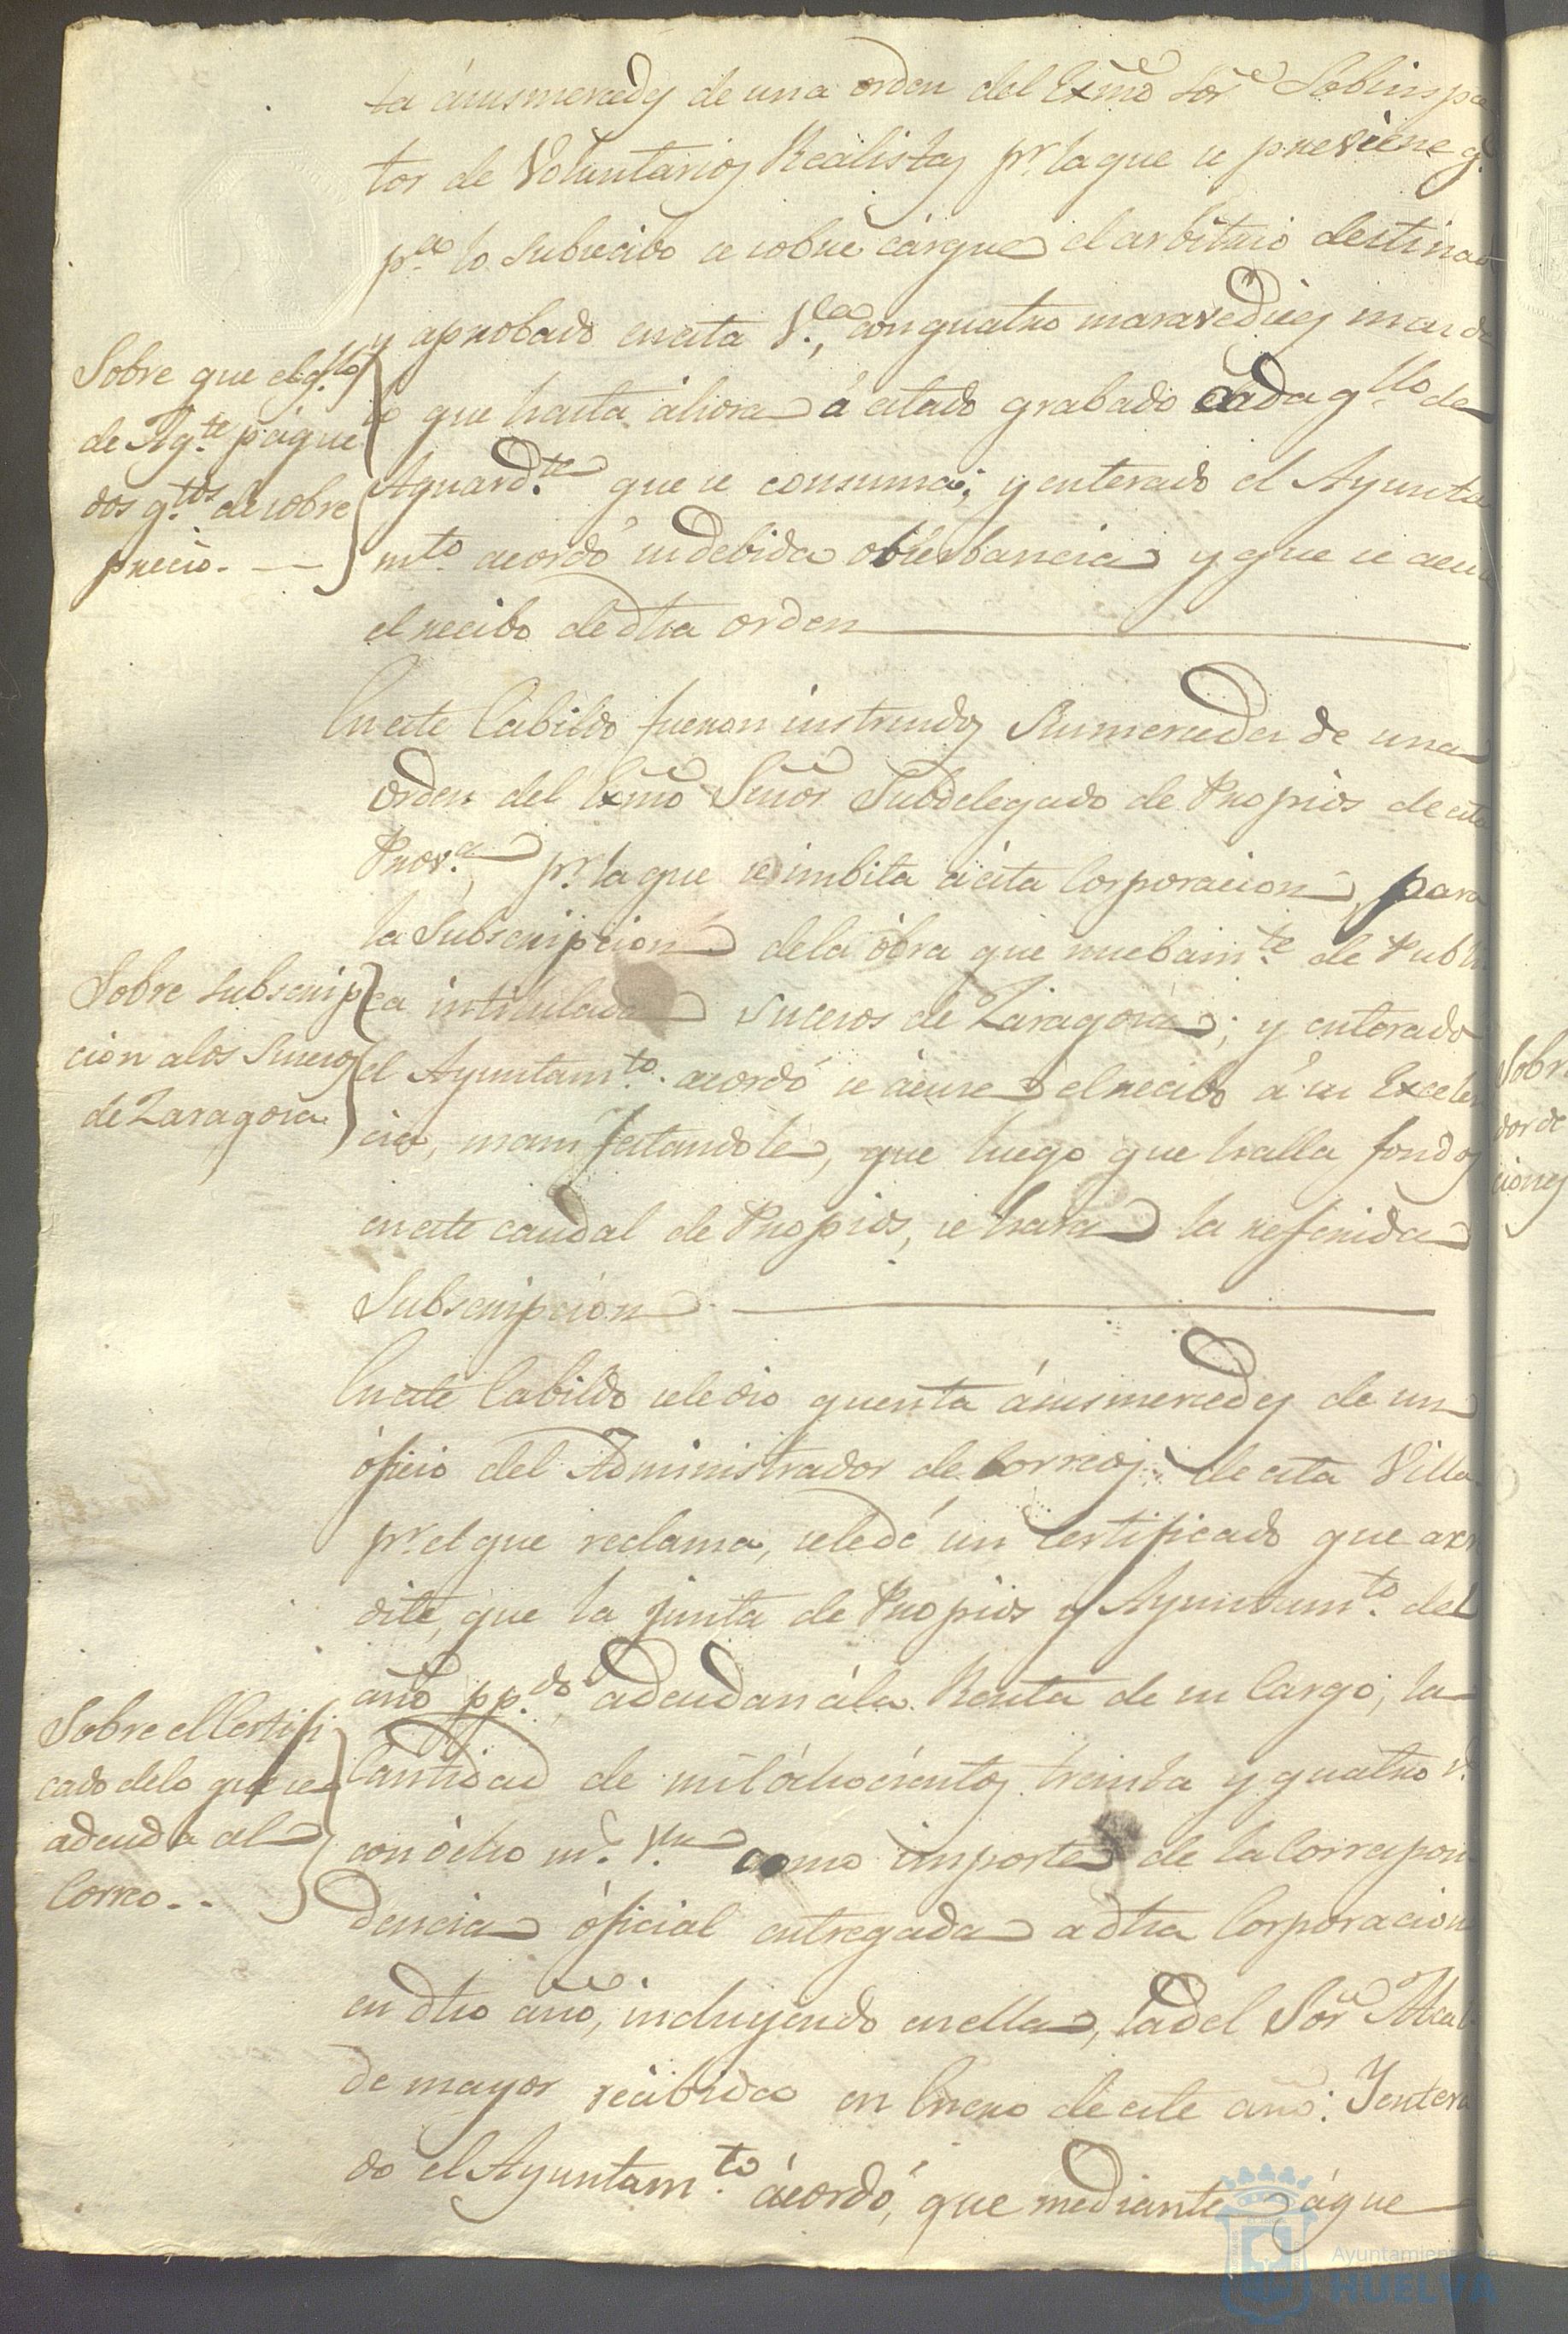 ta ásusmercedes de una orden del Exmõ Sor Sobinspec
tor de Voluntarios Realistas pr. la que se previene q.e
pa. lo subcecibo se sobre cárgue el arbitrio destinado
y aprobado enesta V.a, con quatro maravedises mas de
lo que hasta ahora á estado grabado cada q.llo de
Aguard.te que se consuma; y enterado el Ayunta
m.to acordó su debida observancia y que se acuse
el recibo de dha orden
Sobre que el q.llo
de Ag.te págue
dos q.tos de sobre
precio.
Eneste Cabildo fueron instruidos Susmercedes de una
orden del Exmõ Señor Subdelegado de Propios de esta
Prov.a, pr. la que se imbita á esta Corporacion, para
la Subscripcion dela óbra que nuebam.te se Publi
ca intitulada Sucesos de Zaragoza; y enterado
el Ayuntam.to acordó se ácuse el recibo á su Excelen
cia, manifestandole, que luego que halla fondos
eneste caudal de Propios, se hara la referida
Subscripcion
Sobre subscrip
cion alos Sucesos
de Zaragoza
Eneste Cabildo sele dio quenta ásusmercedes de un
óficio del Administrador de Correos de esta Villa
pr. el que reclama, sele dé un Certificado que acre
dite, que la Junta de Propios y Ayuntam.to del
año pp.do, adeudan ála Renta de su Cargo, la
Cantidad de mil óchocientos treinta y quatro r.s
con ócho m.s V.n como importe de la Correspon
dencia óficial entregada a dha Corporacion
en dho año, incluyendo enella, la del Sor Alcal
de mayor recibida en Enero de este año: Yentera
do el Ayuntam.to ácordó, que mediante á que
Sobre el Certifi
cado delo que se
adeuda al
Correo.
Sobre
dor de
ciones
Ayuntamiento de
HUELVA